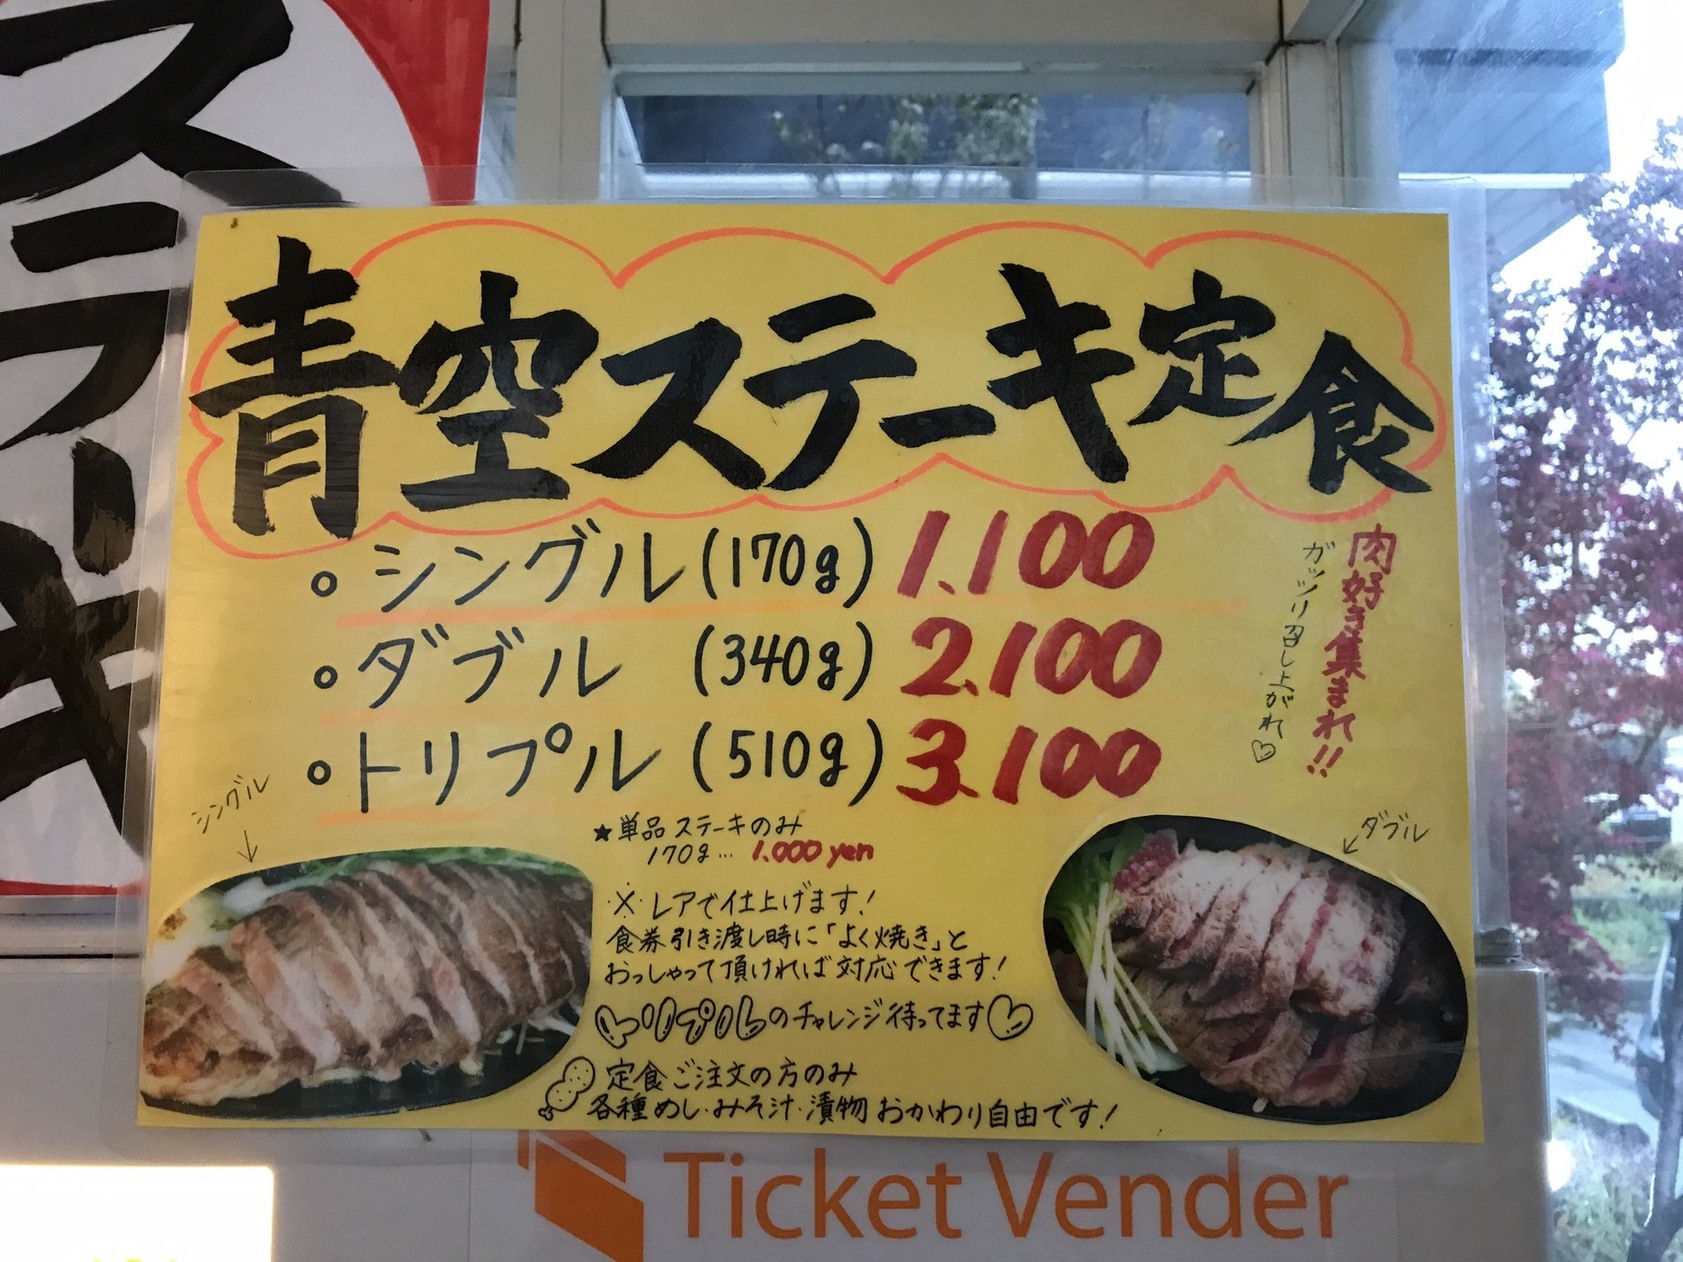 スラーキ
青空ステーキ定食
。シングル(170g) 1.100
。ダブル (340g) 2.100
。トリプル (510g) 3.100
肉好き集まれ!!
ガッツリ召し上がれ♡
シングル
↓
★単品 ステーキのみ
170g… 1.000 yen
ダブル
※レアで仕上げます!
食券引き渡し時に「よく焼き」と
おっしゃって頂ければ対応できます!
トリプルのチャレンジ待ってます♡
定食ご注文の方のみ
各種めし・みそ汁・漬物おかわり自由です!
Ticket Vender